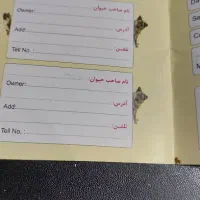 Owner: نام صاحب حیوان:
Add: آدرس:
Tell No.: تلفن:
Owner: نام صاحب حیوان:
Add: آدرس:
Tell No.: تلفن: